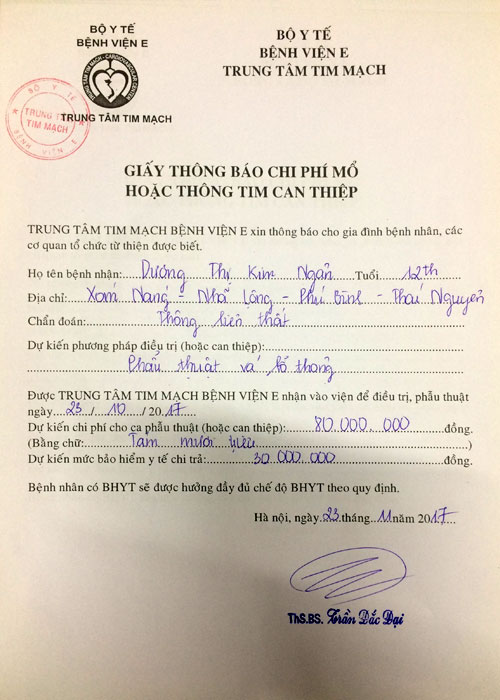 BỘ Y TẾ
BỆNH VIỆN E
TRUNG TÂM TIM MẠCH
BỘ Y TẾ
BỆNH VIỆN E
TRUNG TÂM TIM MẠCH
BỘ Y TẾ
TRUNG TÂM
TIM MẠCH
BỆNH VIỆN E
GIẤY THÔNG BÁO CHI PHÍ MỔ
HOẶC THÔNG TIM CAN THIỆP
TRUNG TÂM TIM MẠCH BỆNH VIỆN E xin thông báo cho gia đình bệnh nhân, các
cơ quan tổ chức từ thiện được biết.
Họ tên bệnh nhân: Dương Thị Kim Ngân Tuổi 12th
Địa chỉ: Xóm Náng - Nhã Lộng - Phú Bình - Thái Nguyên
Chẩn đoán: Thông liên thất
Dự kiến phương pháp điều trị (hoặc can thiệp):
Phẫu thuật vá lỗ thông
Được TRUNG TÂM TIM MẠCH BỆNH VIỆN E nhận vào viện để điều trị, phẫu thuật
ngày 23 / 10 / 2017
Dự kiến chi phí cho ca phẫu thuật (hoặc can thiệp): 80.000.000 đồng.
(Bằng chữ: Tám mươi triệu )
Dự kiến mức bảo hiểm y tế chi trả: 30.000.000 đồng.
Bệnh nhân có BHYT sẽ được hưởng đầy đủ chế độ BHYT theo quy định.
Hà nội, ngày 23 tháng 11 năm 2017
ThS.BS. Trần Đắc Đại